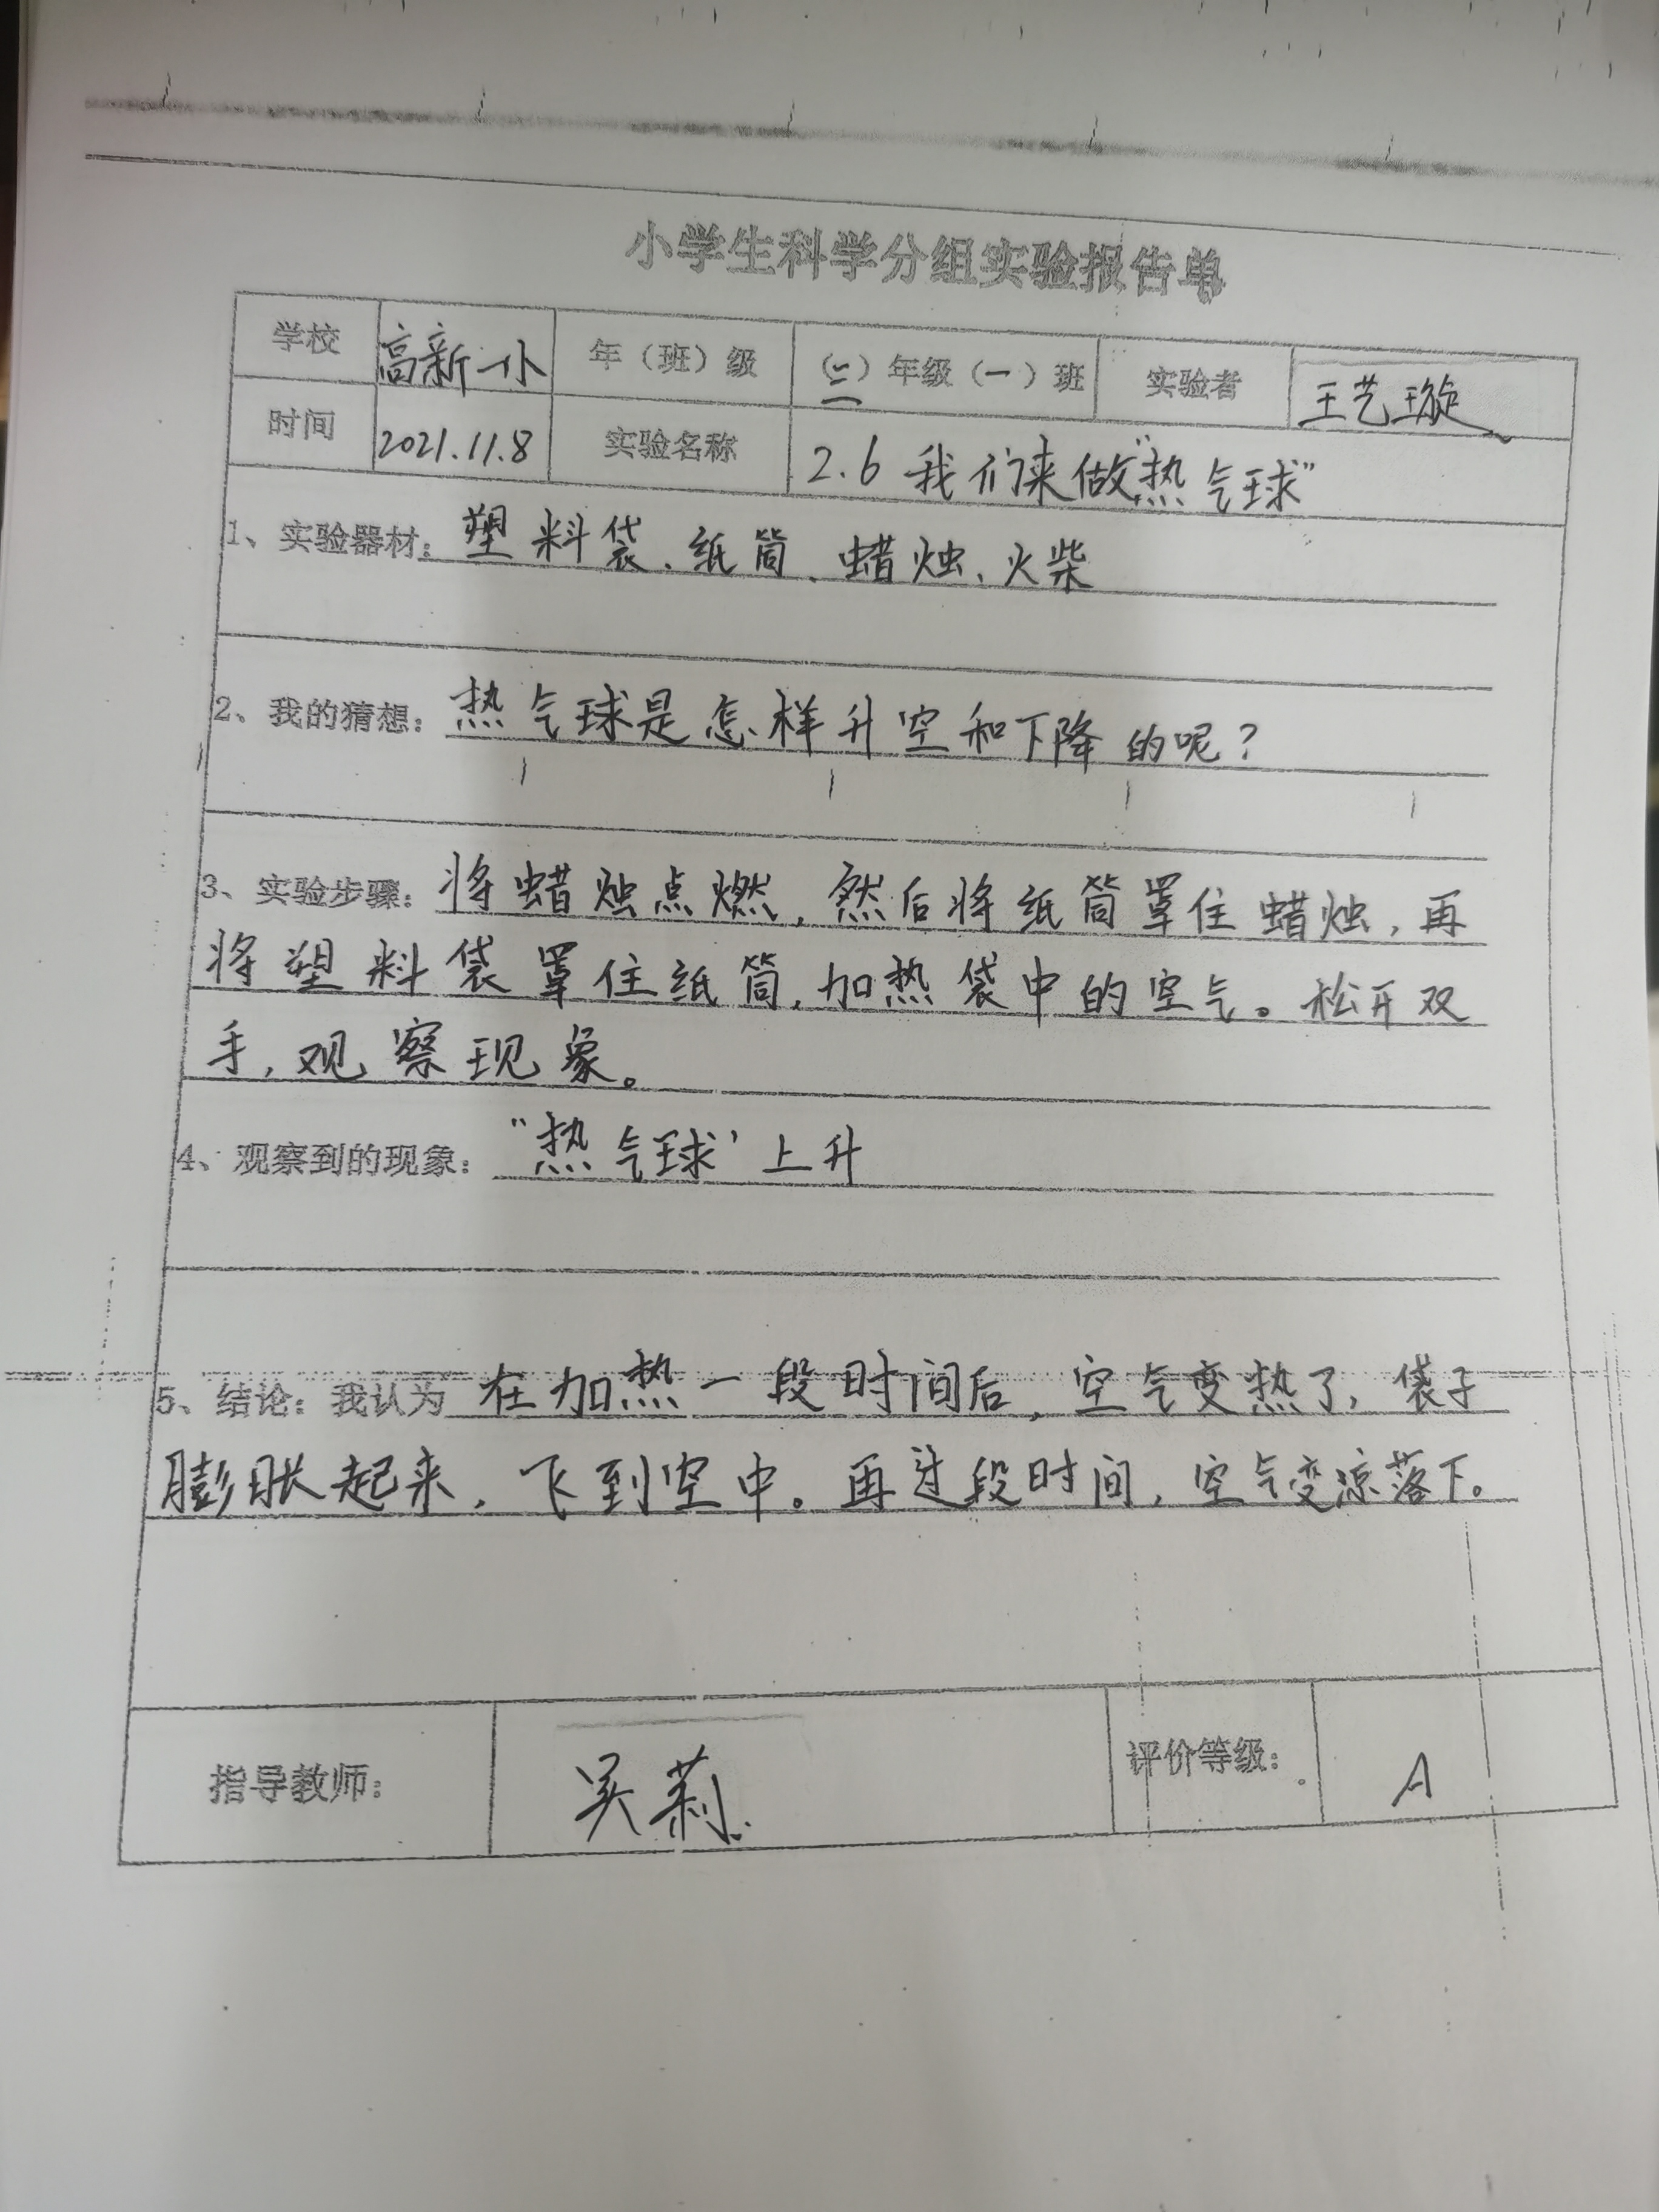 小学生科学分组实验报告单
学校 高新一小 年（班）级 （三）年级（一）班 实验者 王艺璇
时间 2021.11.8 实验名称 2.6 我们来做“热气球”
1、实验器材：塑料袋、纸筒、蜡烛、火柴
2、我的猜想：热气球是怎样升空和下降的呢？
3、实验步骤：将蜡烛点燃，然后将纸筒罩住蜡烛，再
将塑料袋罩住纸筒，加热袋中的空气。松开双
手，观察现象。
4、观察到的现象：“热气球’上升
5、结论：我认为 在加热一段时间后，空气变热了，袋子
膨胀起来，飞到空中。再过段时间，空气变凉落下。
指导教师： 吴莉 评价等级： A